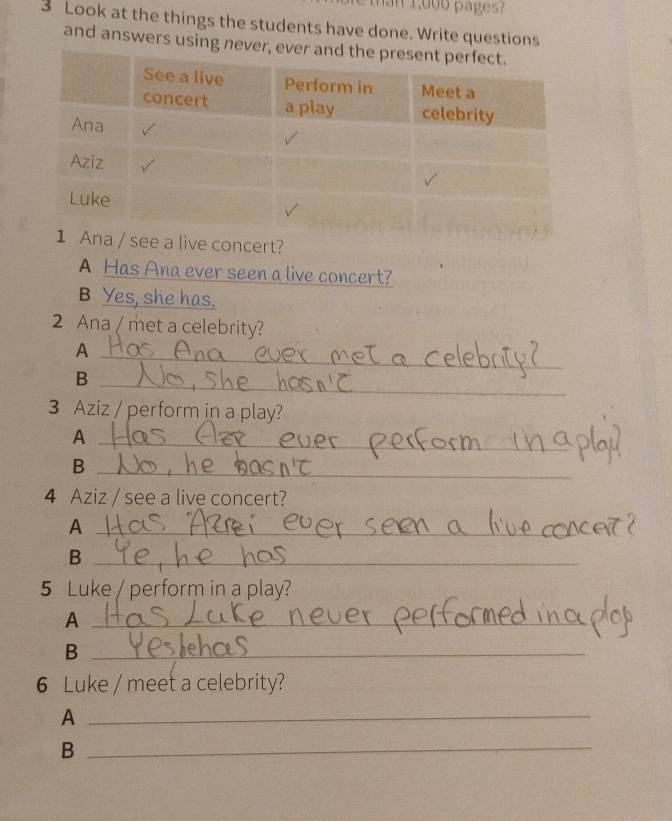 than 1,000 pages?
3 Look at the things the students have done. Write questions
and answers using never, ever and the present perfect.
See a live concert Perform in a play Meet a celebrity
Ana ✓ ✓
Aziz ✓ ✓
Luke ✓
1 Ana / see a live concert?
A Has Ana ever seen a live concert?
B Yes, she has.
2 Ana / met a celebrity?
A Has Ana ever met a celebrity?
B No, she hasn't
3 Aziz / perform in a play?
A Has ever perform in a play?
B No, he hasn't
4 Aziz / see a live concert?
A Has ever seen a live concert?
B Ye, he has
5 Luke / perform in a play?
A Has Luke never performed in a play
B Yes he has
6 Luke / meet a celebrity?
A
B